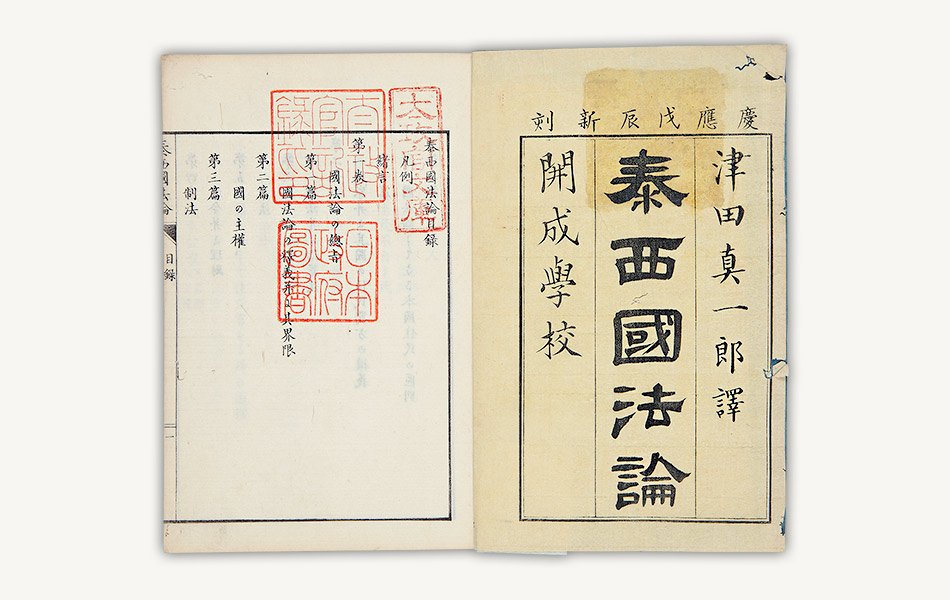 慶應戊辰新刻
津田真一郎譯
泰西國法論
開成學校
泰西國法論目録
凡例
緒言
第一卷
國法論の總旨
第一篇
國法論の釋義并に其界限
第二篇
國の主權
第三篇
制法
泰西國法論
目録
一
日本政府圖書